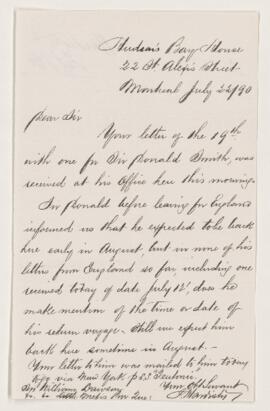 Hudson's Bay House
22 St. Alexis Street
Montreal July 22/90
Dear Sir
Your letter of the 19th
with one for Sir Donald Smith, was
received at his Office here this morning.
Sir Donald before leaving for England
informed us that he expected to be back
here early in August, but in none of his
letters from England so far, including one
received today of date July 12th, does he
make mention of the time or date of
his return voyage. Still we expect him
back here sometime in August.
Your letter to him was mailed to him today
via New York p S.S. Teutonic.
Sir William Dawson Your Obt servant
Metis Que